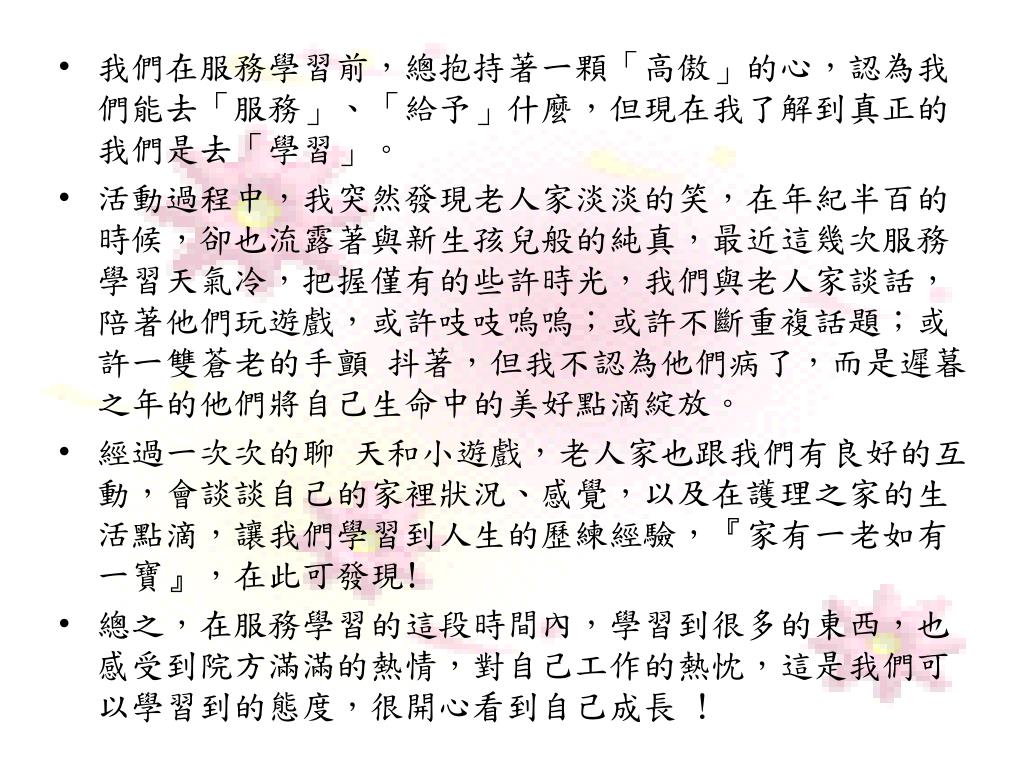 • 我們在服務學習前，總抱持著一顆「高傲」的心，認為我
們能去「服務」、「給予」什麼，但現在我了解到真正的
我們是去「學習」。
• 活動過程中，我突然發現老人家淡淡的笑，在年紀半百的
時候，卻也流露著與新生孩兒般的純真，最近這幾次服務
學習天氣冷，把握僅有的些許時光，我們與老人家談話，
陪著他們玩遊戲，或許吱吱嗚嗚；或許不斷重複話題；或
許一雙蒼老的手顫 抖著，但我不認為他們病了，而是遲暮
之年的他們將自己生命中的美好點滴綻放。
• 經過一次次的聊 天和小遊戲，老人家也跟我們有良好的互
動，會談談自己的家裡狀況、感覺，以及在護理之家的生
活點滴，讓我們學習到人生的歷練經驗，『家有一老如有
一寶』，在此可發現!
• 總之，在服務學習的這段時間內，學習到很多的東西，也
感受到院方滿滿的熱情，對自己工作的熱忱，這是我們可
以學習到的態度，很開心看到自己成長 !